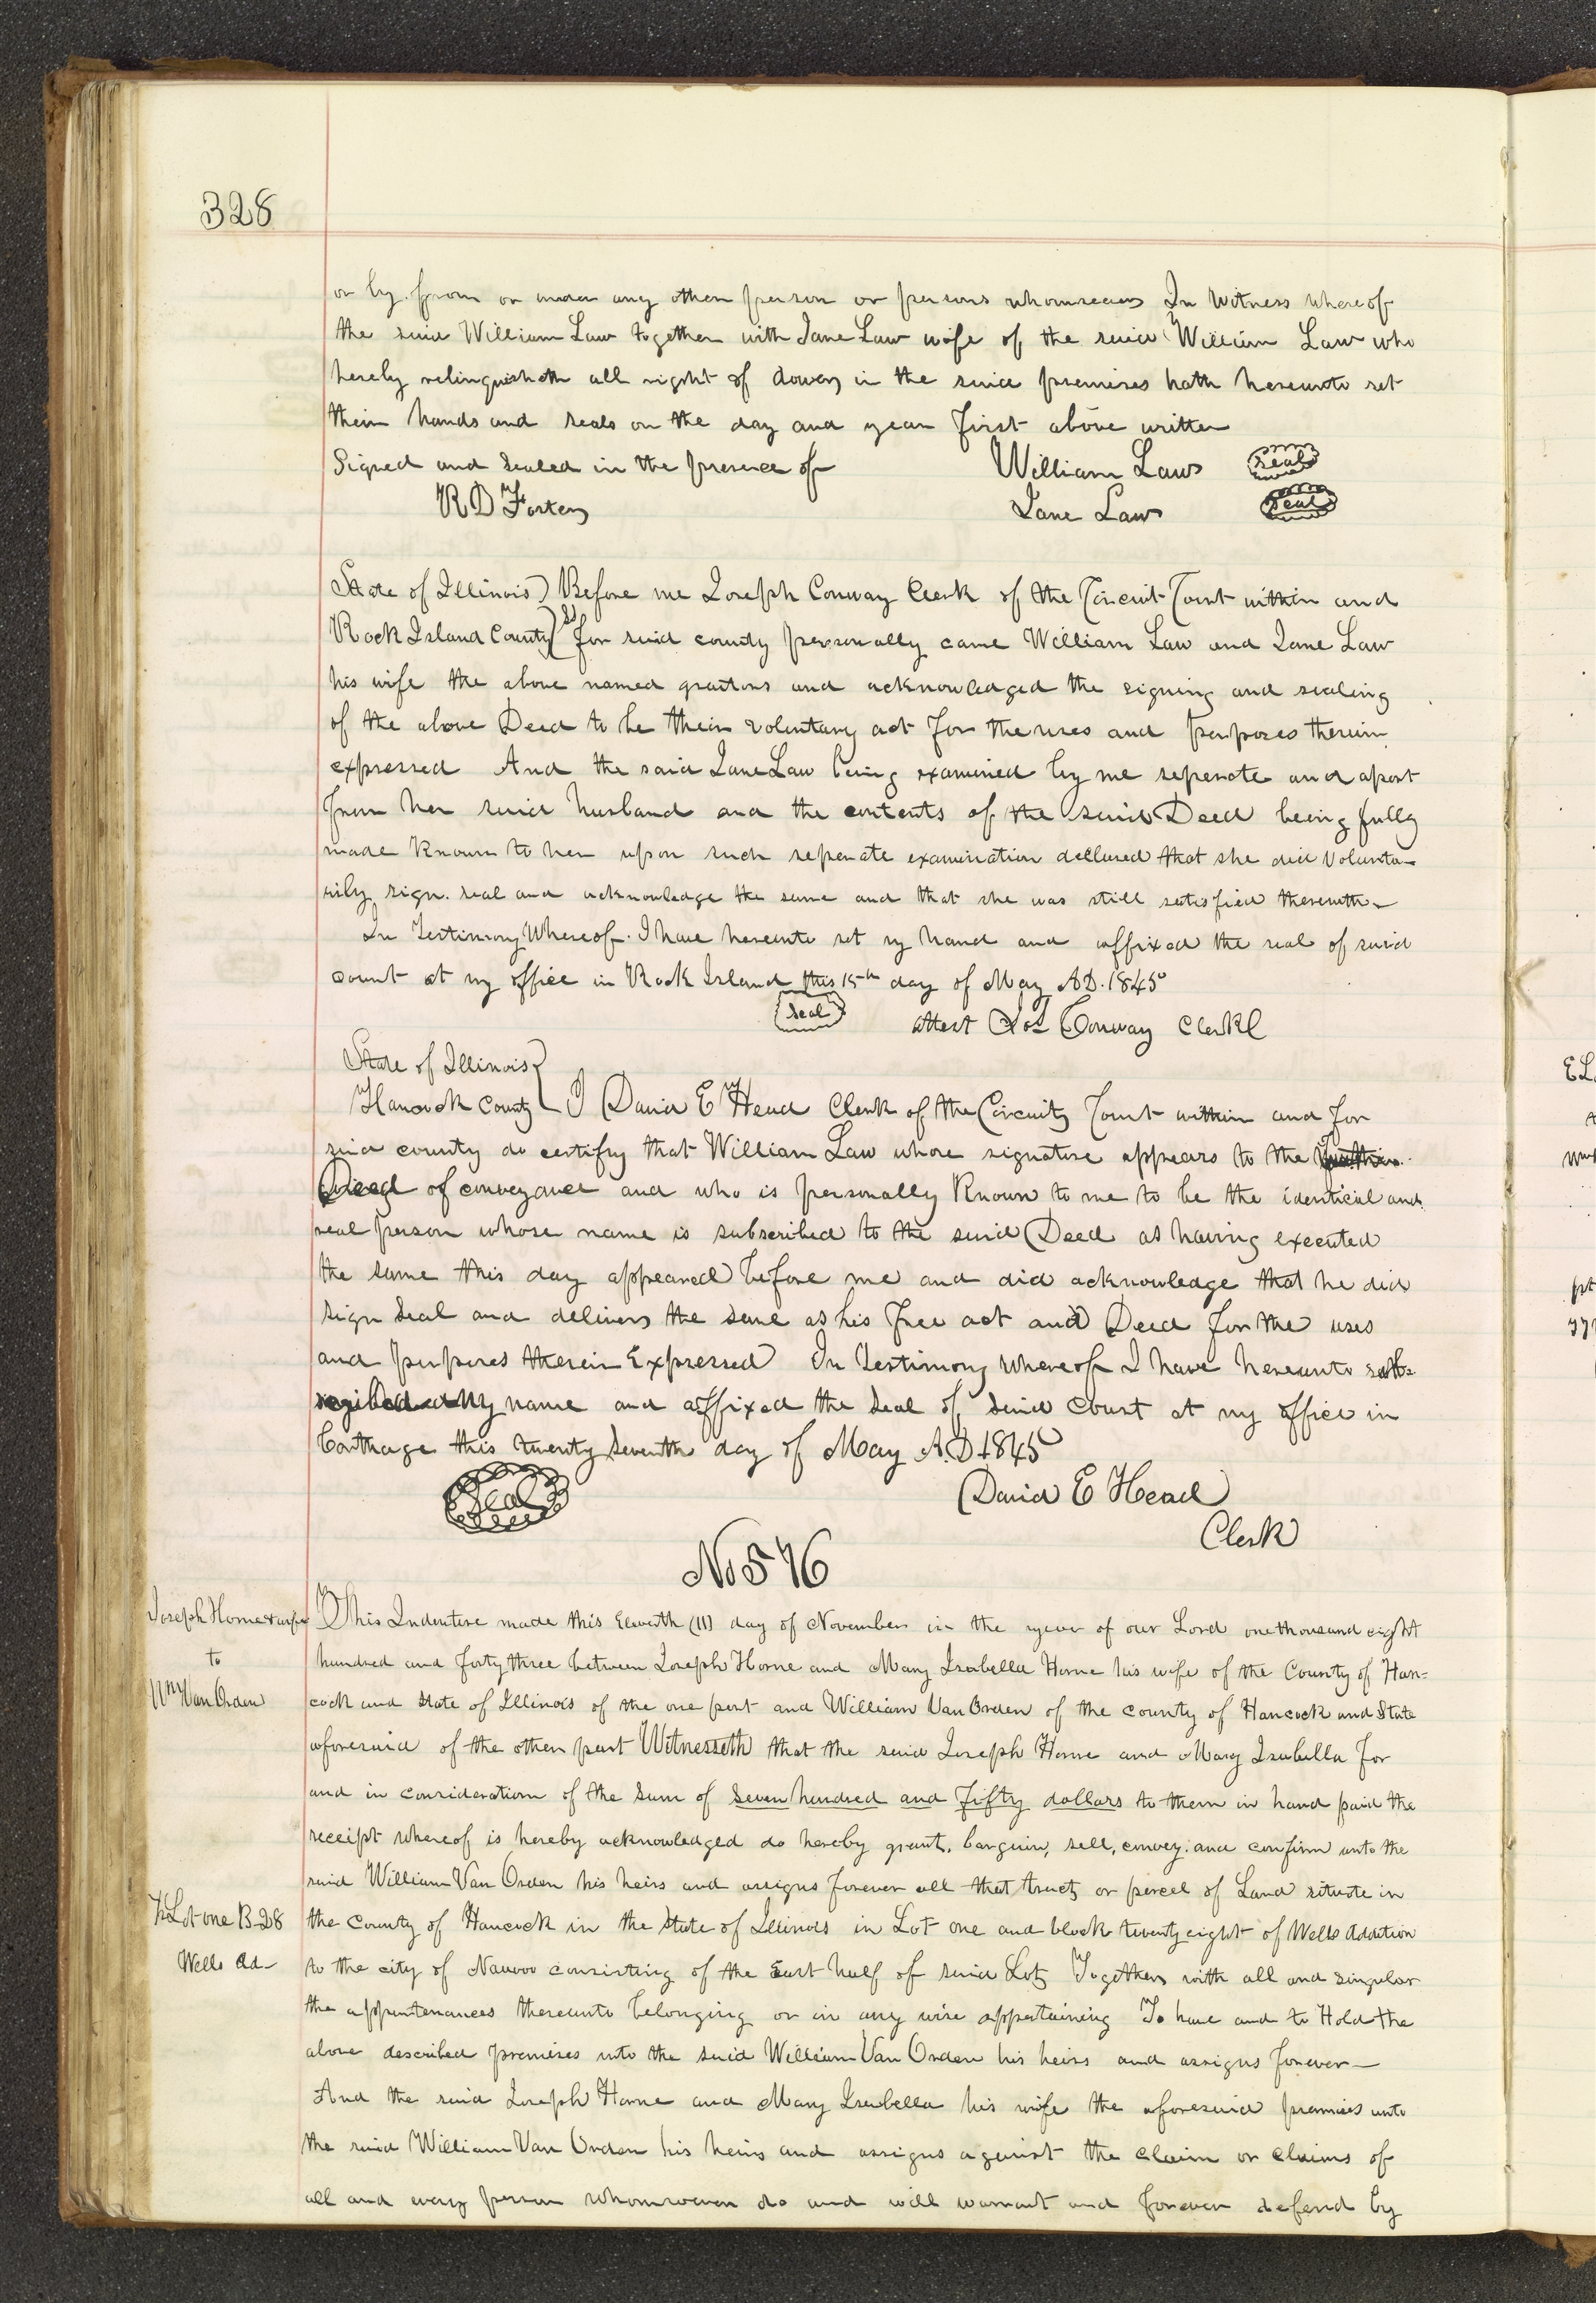 328
or by from or under any other person or persons whomsoever In Witness whereof
the said William Law together with Jane Law wife of the said William Law who
hereby relinquisheth all right of dower in the said premises hath hereunto set
their hands and seals on the day and year first above written
Signed and Sealed in the presence of William Law Seal
R D Foster Jane Law Seal
State of Illinois) Before me Joseph Conway Clerk of the Circuit Court within and
Rock Island County) SS for said county personally came William Law and Jane Law
his wife the above named grantors and acknowledged the signing and sealing
of the above Deed to be their voluntary act for the uses and purposes therein
expressed And the said Jane Law being examined by me seperate and apart
from her said husband and the contents of the said Deed being fully
made Known to her upon such seperate examination declared that she did volunta-
rily sign. seal and acknowledge the same and that she was still satisfied therewith-
In Testimony Whereof. I have hereunto set my hand and affixed the seal of said
court at my office in Rock Island this 15th day of May A.D. 1845
Seal attest Jos Conway Clerk
State of Illinois}
Hancock County} I David E Head Clerk of the Circuit Court within and for
said county do certify that William Law whose signature appears to the
Deed of conveyance and who is personally Known to me to be the identical and
real person whose name is subscribed to the said Deed as having executed
the same this day appeared before me and did acknowledge that he did
sign seal and deliver the same as his free act and Deed for the uses
and purposes therein Expressed In Testimony whereof I have hereunto sub=
my name and affixed the Seal of said Court at my office in
Carthage this twenty seventh day of May A.D 1845
Seal David E Head
Clerk
No 576
Joseph Horne & wife
to
Wm Van Orden
This Indenture made this Eleventh (11) day of November in the year of our Lord one thousand eight
hundred and forty three between Joseph Horne and Mary Isabella Horne his wife of the County of Han=
cock and State of Illinois of the one part and William Van Orden of the county of Hancock and State
aforesaid of the other part Witnesseth that the said Joseph Horne and Mary Isabella for
and in consideration of the sum of seven hundred and fifty dollars to them in hand paid the
receipt whereof is hereby acknowledged do hereby grant, bargain, sell, convey, and confirm unto the
said William Van Orden his heirs and assigns forever all that tract or parcel of Land situate in
½ Lot one B-28
Wells Ad-
the County of Hancock in the State of Illinois in Lot one and block twenty eight of Wells Addition
to the city of Nauvoo consisting of the East half of said Lot Together with all and singular
the appurtenances thereunto belonging or in any wise appertaining To have and to Hold the
above described premises unto the said William Van Orden his heirs and assigns forever-
And the said Joseph Horne and Mary Isabella his wife the aforesaid premises unto
the said William Van Orden his heirs and assigns against the claim or claims of
all and every person whomsoever do and will warrant and forever defend by